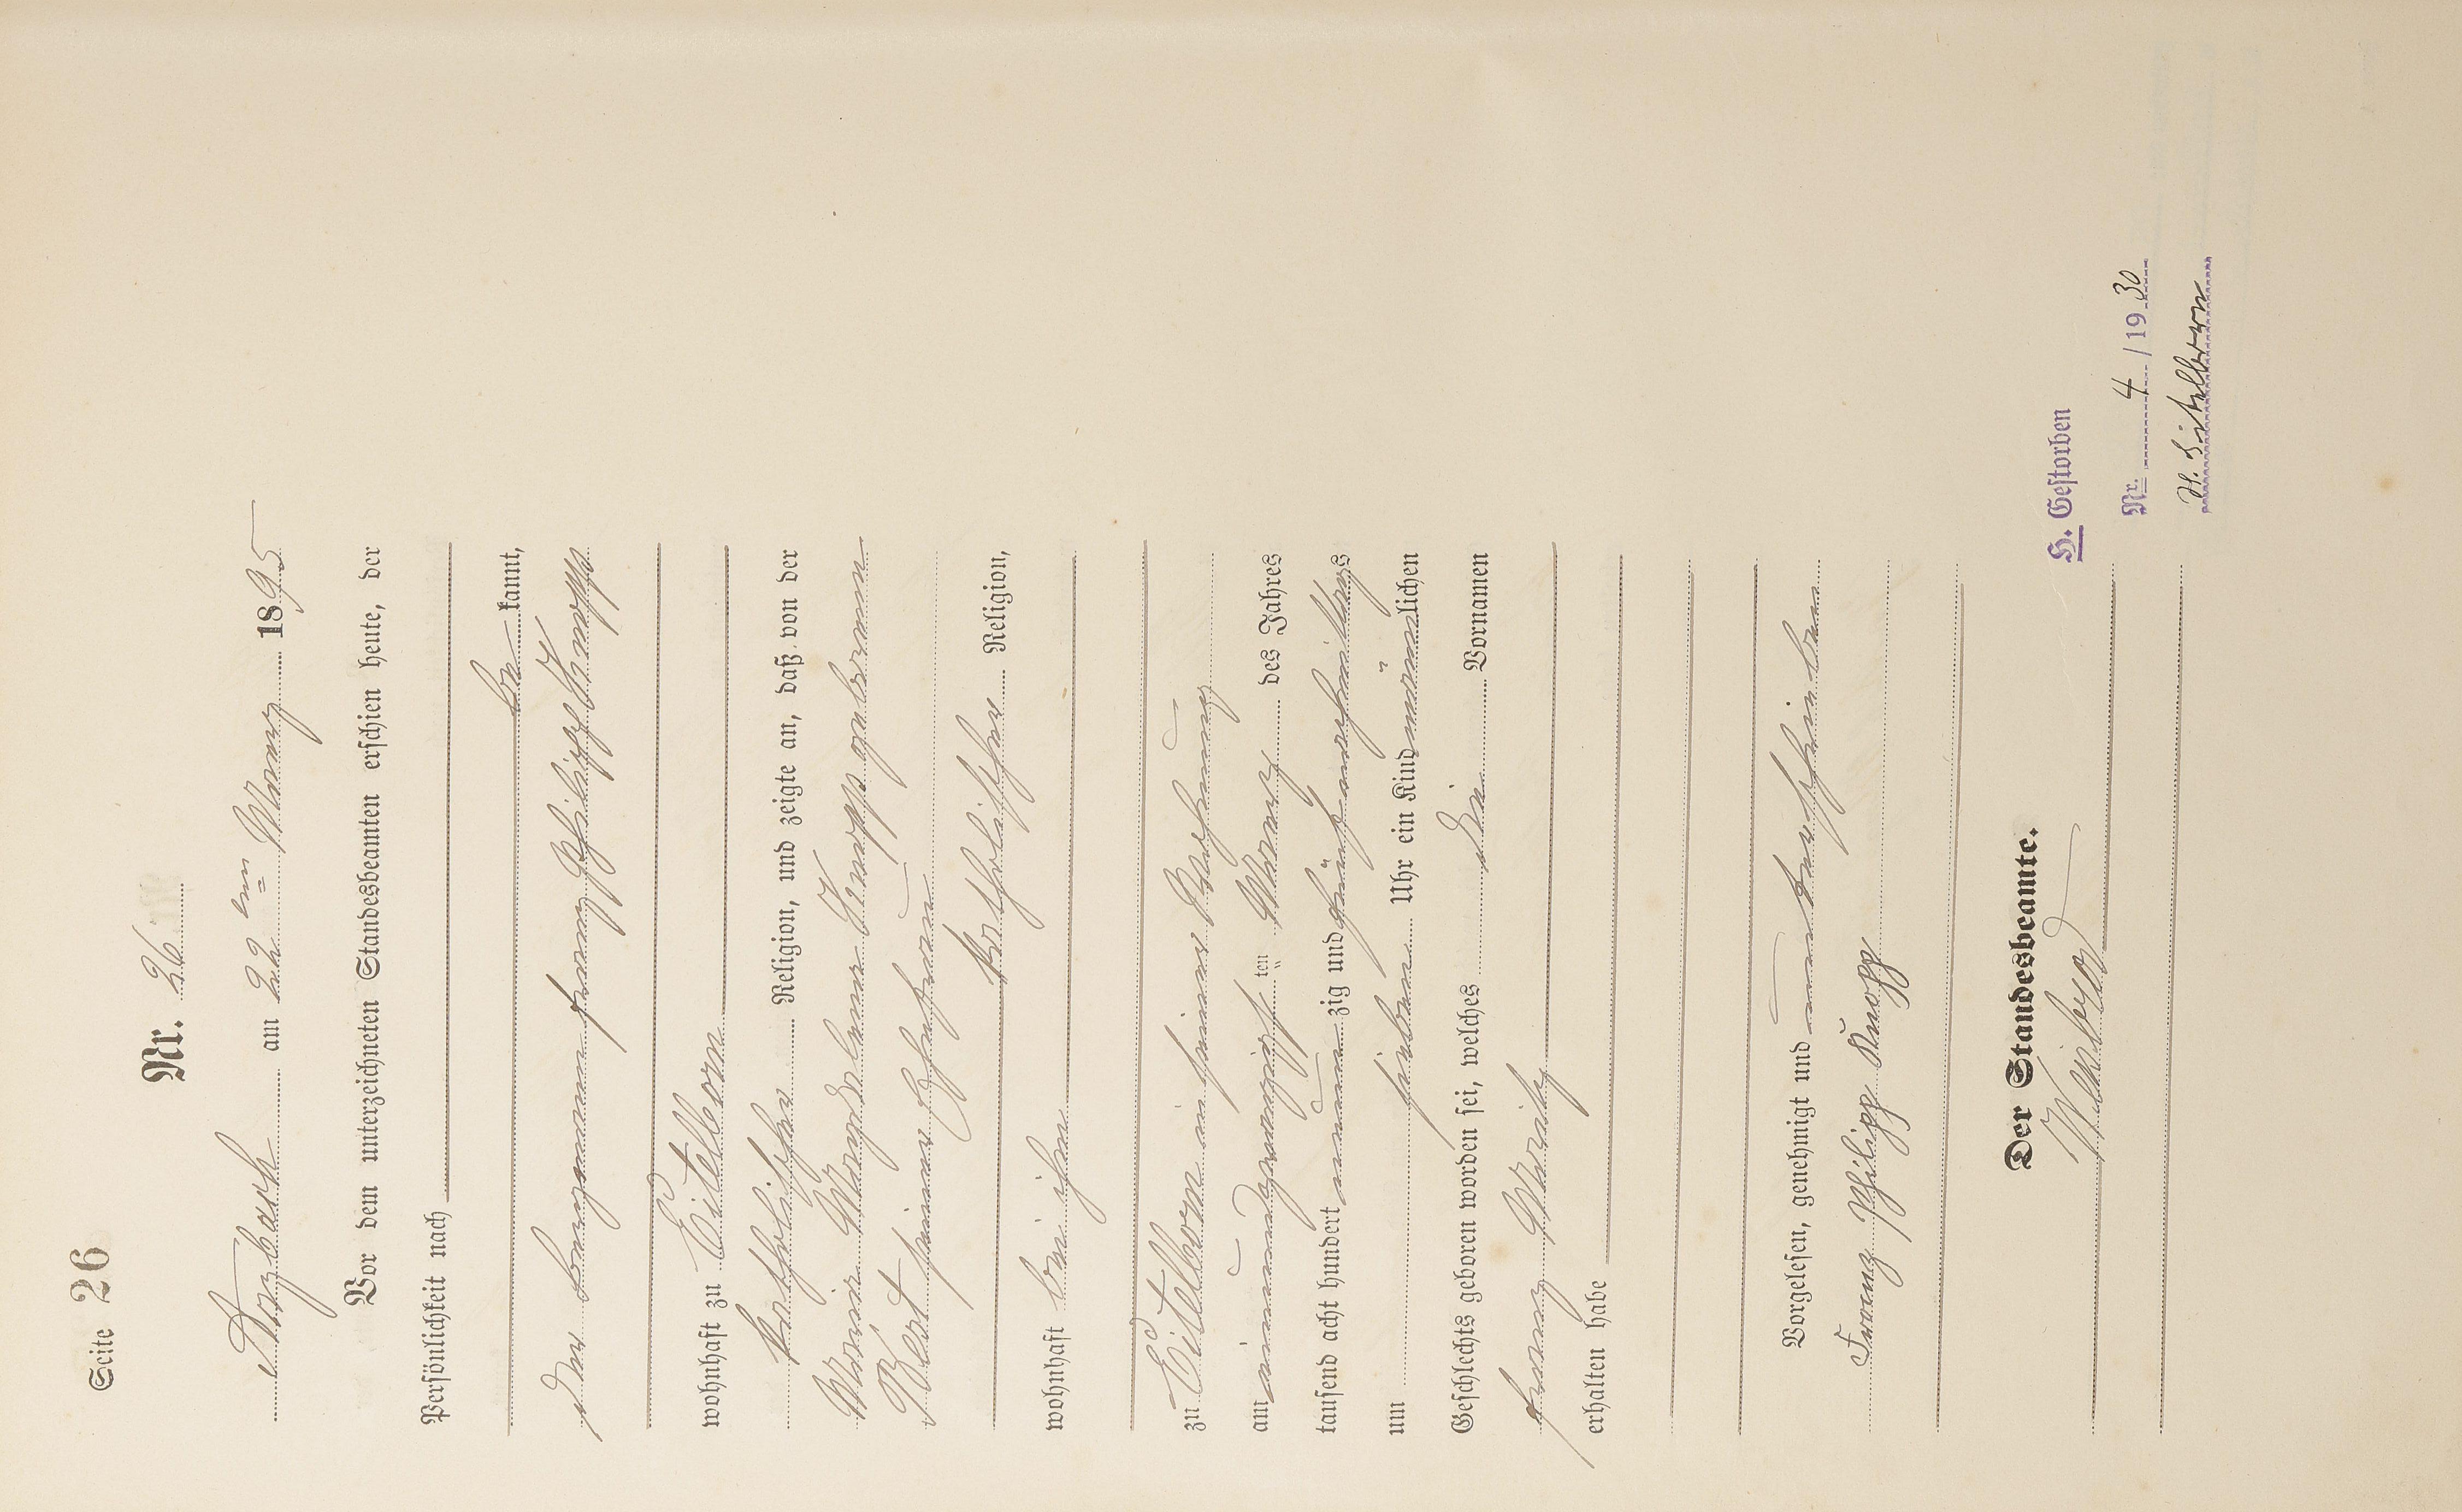 Seite 26
Nr. 26
Arzbach am 22ten März 1895
Vor dem unterzeichneten Standesbeamten erschien heute, der
Persönlichkeit nach
be kannt,
der Bergmann Franz Philipp Knopp
wohnhaft zu Eitelborn
katholischer Religion, und zeigte an, daß von der
Maria Magdalena Knopp geborenen
Best seiner Ehefrau
katholischer Religion,
wohnhaft bei ihm
zu Eitelborn in seiner Wohnung
am einundzwanzigsten März des Jahres
tausend acht hundert neunzig und fünf nachmittags
um sieben Uhr ein Kind männlichen
Geschlechts geboren worden sei, welches die Vornamen
Franz Moritz
erhalten habe
Vorgelesen, genehmigt und unterschrieben
Franz Philipp Knopp
Der Standesbeamte.
H. Gestorben
Nr. 4 /1930
St. A. Eitelborn